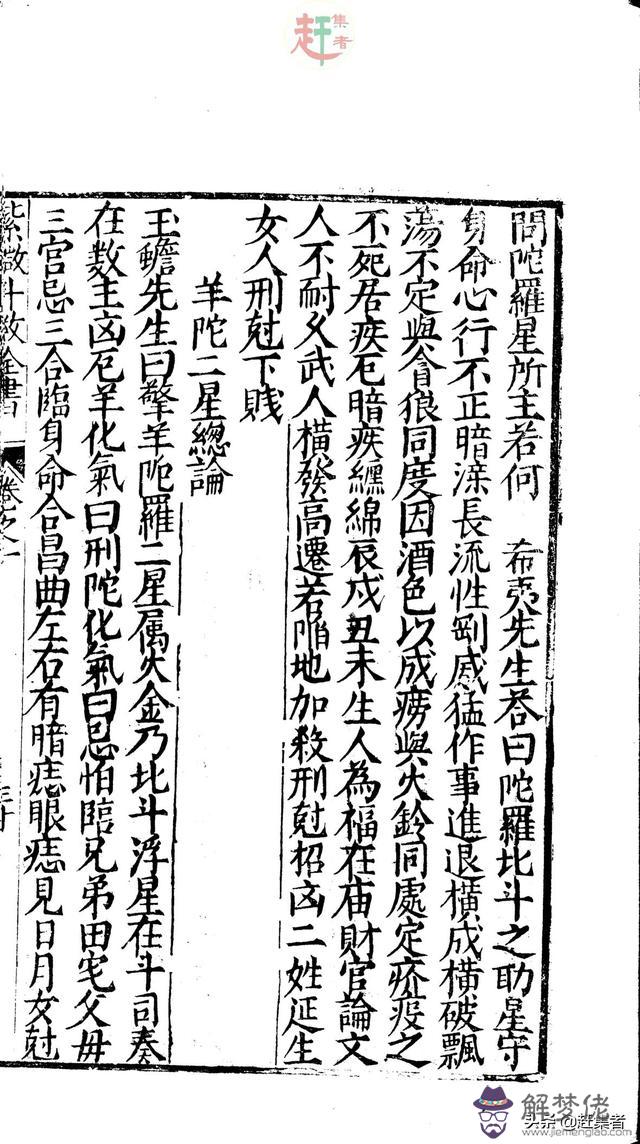 赶集者
問陀羅星所主若何　希夷先生荅曰陀羅北斗之助星守
身命心行不正暗淚長流性剛威猛作事進退橫成橫破飄
蕩不定與貪狼同度因酒色以成癆與火鈴同處定疥疫之
不死居疾厄暗疾纏綿辰戌丑未生人為福在庙財官論文
人不耐久武人橫發高遷若陷地加殺刑尅招凶二姓延生
女人刑尅下賤
羊陀二星總論
玉蟾先生曰擎羊陀羅二星属火金乃北斗浮星在斗司奏
在数主凶厄羊化氣曰刑陀化氣曰忌怕臨兄弟田宅父母
三宫忌三合臨身命合昌曲左右有暗痣眼痣見日月女尅
紫微斗数全書
卷之一
三十
解梦佬
头条@赶集者
www.jiemenglab.com